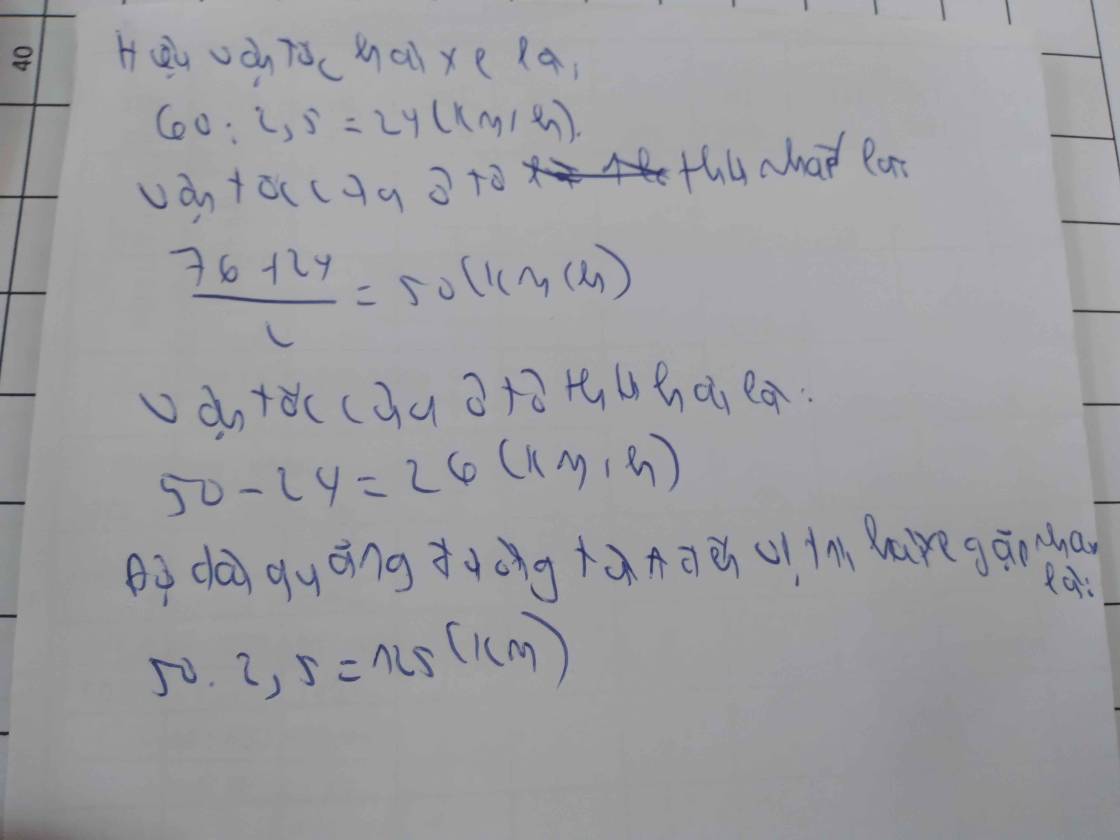 40
Hiệu vận tốc hai xe là:
60 : 2,5 = 24 (km/h).
Vận tốc của ô tô thứ nhất là:
76 + 24 / 2 = 50 (km/h)
Vận tốc của ô tô thứ hai là:
50 - 24 = 26 (km/h)
Độ dài quãng đường từ A đến vị trí hai xe gặp nhau là:
50 . 2,5 = 125 (km)